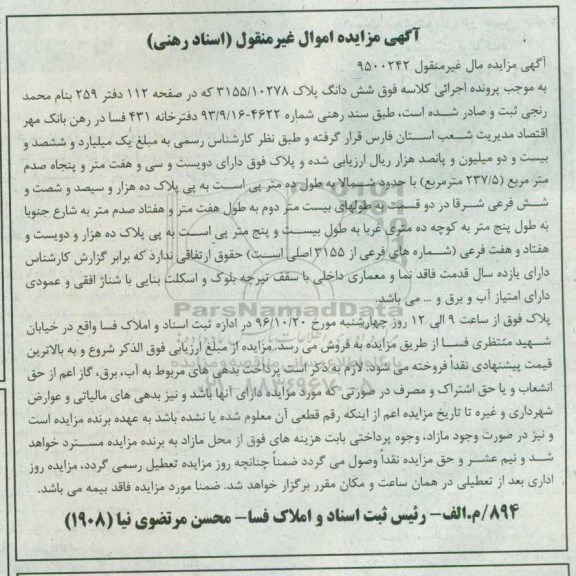 آگهی مزایده اموال غیرمنقول (اسناد رهنی)
آگهی مزایده مال غیرمنقول ۹۵۰۰۲۴۲
به موجب پرونده اجرائی کلاسه فوق شش دانگ پلاک ۳۱۵۵/۱۰۲۷۸ که در صفحه ۱۱۲ دفتر ۲۵۹ بنام محمد
رنجی ثبت و صادر شده است، طبق سند رهنی شماره ۴۶۲۲-۹۳/۹/۱۶ دفترخانه ۴۳۱ فسا در رهن بانک مهر
اقتصاد مدیریت شعب استان فارس قرار گرفته و طبق نظر کارشناس رسمی به مبلغ یک میلیارد و ششصد و
بیست و دو میلیون و پانصد هزار ریال ارزیابی شده و پلاک فوق دارای دویست و سی و هفت متر و پنجاه صدم
متر مربع (۲۳۷/۵ مترمربع) با حدود شمالا به طول ده متر پی است به پی پلاک ده هزار و سیصد و شصت و
شش فرعی شرقا در دو قسمت به طولهای بیست متر دوم به طول هفت متر و هفتاد صدم متر به شارع جنوبا
به طول پنج متر به کوچه ده متری غربا به طول بیست و پنج متر پی است به پی پلاک ده هزار و دویست و
هفتاد و هفت فرعی (شماره های فرعی از ۳۱۵۵ اصلی است) حقوق ارتفاقی ندارد که برابر گزارش کارشناس
دارای یازده سال قدمت فاقد نما و معماری داخلی با سقف تیرچه بلوک و اسکلت بنایی با شناژ افقی و عمودی
دارای امتیاز آب و برق و ... می باشد.
پلاک فوق از ساعت ۹ الی ۱۲ روز چهارشنبه مورخ ۹۶/۱۰/۲۰ در اداره ثبت اسناد و املاک فسا واقع در خیابان
شهید منتظری فسا از طریق مزایده به فروش می رسد. مزایده از مبلغ ارزیابی فوق الذکر شروع و به بالاترین
قیمت پیشنهادی نقداً فروخته می شود. لازم به ذکر است پرداخت بدهی های مربوط به آب، برق، گاز اعم از حق
انشعاب و یا حق اشتراک و مصرف در صورتی که مورد مزایده دارای آنها باشد و نیز بدهی های مالیاتی و عوارض
شهرداری و غیره تا تاریخ مزایده اعم از اینکه رقم قطعی آن معلوم شده یا نشده باشد به عهده برنده مزایده است
و نیز در صورت وجود مازاد، وجوه پرداختی بابت هزینه های فوق از محل مازاد به برنده مزایده مسترد خواهد
شد و نیم عشر و حق مزایده نقداً وصول می گردد ضمناً چنانچه روز مزایده تعطیل رسمی گردد، مزایده روز
اداری بعد از تعطیلی در همان ساعت و مکان مقرر برگزار خواهد شد. ضمنا مورد مزایده فاقد بیمه می باشد.
۸۹۴/م.الف- رئیس ثبت اسناد و املاک فسا- محسن مرتضوی نیا (۱۹۰۸)
ParsNamadData